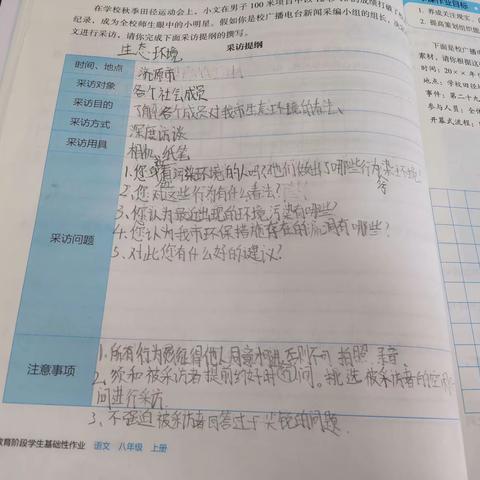 在学校秋季田径运动会上，小文在男子100米项目中以
纪录，成为全校师生眼中的小明星。假如你是校广播电台新闻采编小组的组长，
文进行采访。请你完成下面采访提纲的撰写。
生态环境
采访提纲
时间、地点
济源市
采访对象
各个社会成员
采访目的
了解各个成员对我市生态环境的看法、
采访方式
深度访谈
采访用具
相机、纸笔
采访问题
污染环境的人吗？他们做出了哪些行为
2、您对这些行为有什么看法？
3、你认为最近出现的环境污染有哪些？
4、您认为我市环保措施存在的漏洞有哪些？
5、对此您有什么好的建议？
注意事项
1、所有行为要征得他人同意 否则不可拍照、录音
2、须和被采访者提前约好时间。挑选被采访者的空闲时
间进行采访
3、不强迫被采访者回答过于尖锐的问题.
教育阶段学生基础性作业 语文 八年级 上册
作业目标
1. 养成关注现实、
2. 提高策划组织能
下面是校广播
素材，请你根据这
时间：20××年
地点：学校田径
事件：第二十九
参与人员：全体
开幕式流程：